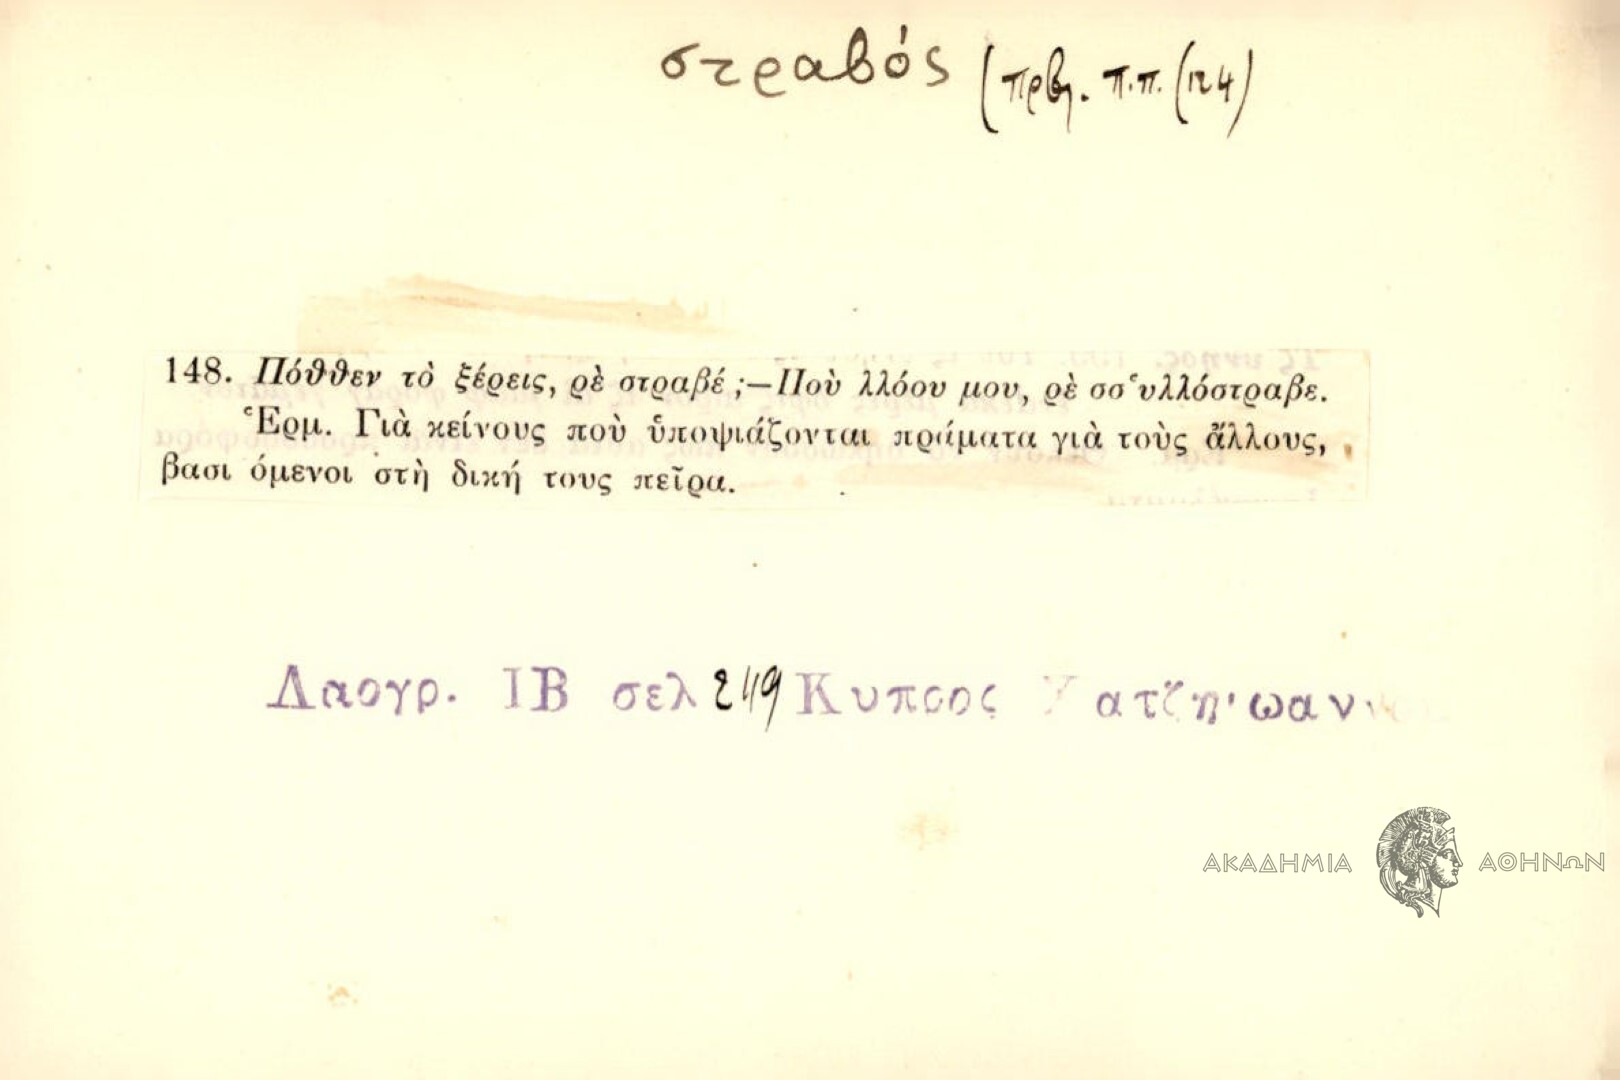 στραβός (πρβλ. π.π. (124)
148. Πόθθεν τὸ ξέρεις, ρὲ στραβέ ;—Ποὺ λλόου μου, ρὲ σσ‘υλλόστραβε.
Ἑρμ. Γιὰ κείνους ποὺ ὑποψιάζονται πράματα γιὰ τοὺς ἄλλους,
βασι όμενοι στὴ δική τους πεῖρα.
Λαογρ. ΙΒ σελ 249 Κυπρος
ΑΚΑΔΗΜΙΑ ΑΘΗΝΩΝ